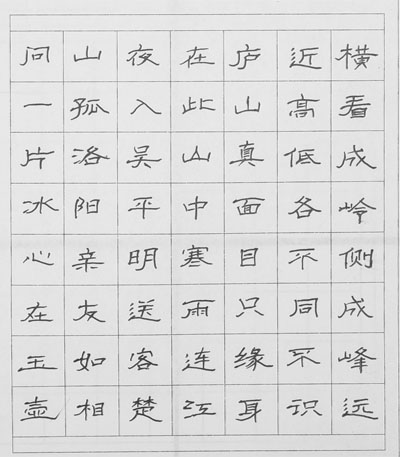 横看成岭侧成峰远
近高低各不同不识
庐山真面目只缘身
在此山中寒雨连江
夜入吴平明送客楚
山孤洛阳亲友如相
问一片冰心在玉壶